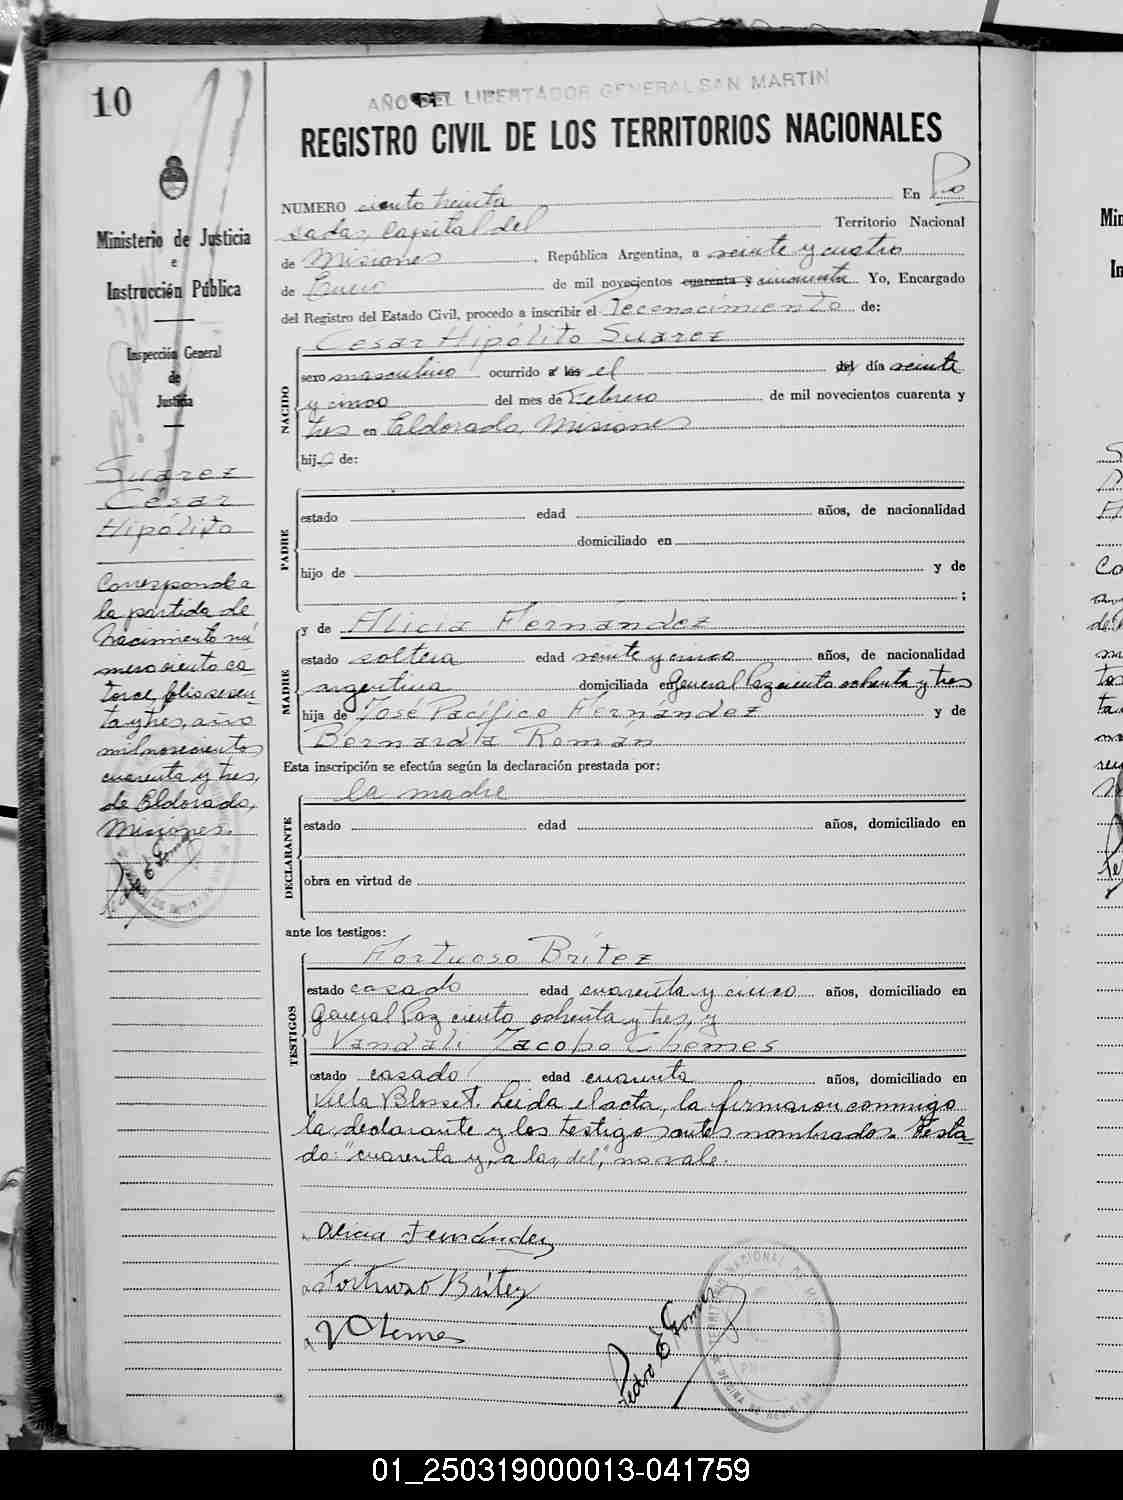 10
AÑO DEL LIBERTADOR GENERAL SAN MARTIN
REGISTRO CIVIL DE LOS TERRITORIOS NACIONALES
Ministerio de Justicia
e
Instrucción Pública
Inspección General
de
Justicia
Suarez
César
Hipólito
Corresponde a
la partida de
nacimiento nú
mero ciento ca
torce, folio sesen
ta y tres, año
mil novecientos
cuarenta y tres,
de Eldorado,
Misiones.
Pedro E. Gomez
NUMERO ciento treinta En Po
sadas, Capital del Territorio Nacional
de Misiones, República Argentina, a veinte y cuatro
de Enero de mil novecientos cuarenta y cincuenta Yo, Encargado
del Registro del Estado Civil, procedo a inscribir el reconocimiento de:
Cesar Hipólito Suarez
NACIDO
sexo masculino ocurrido a las el del día veinte
y cinco del mes de Febrero de mil novecientos cuarenta y
tres en Eldorado, Misiones
hijo de:
PADRE
estado edad años, de nacionalidad
domiciliado en
hijo de y de
;
MADRE
y de Alicia Fernández
estado soltera edad veinte y cinco años, de nacionalidad
argentina domiciliada en General Paz ciento ochenta y tres
hija de José Pacífico Fernández y de
Bernarda Román
Esta inscripción se efectúa según la declaración prestada por:
la madre
DECLARANTE
estado edad años, domiciliado en
obra en virtud de
ante los testigos:
TESTIGOS
Fortuoso Britez
estado casado edad cuarenta y cinco años, domiciliado en
General Paz ciento ochenta y tres, y
Vandali Jacobo Chemes
estado casado edad cuarenta años, domiciliado en
Villa Blosset. Leida el acta, la firmaron conmigo
la declarante y los testigos antes nombrados. Testa-
do: "cuarenta y, a las, del", no vale.
Alicia Fernández
Fortuoso Britez
V Chemes
Pedro E. Gomez
01_250319000013-041759